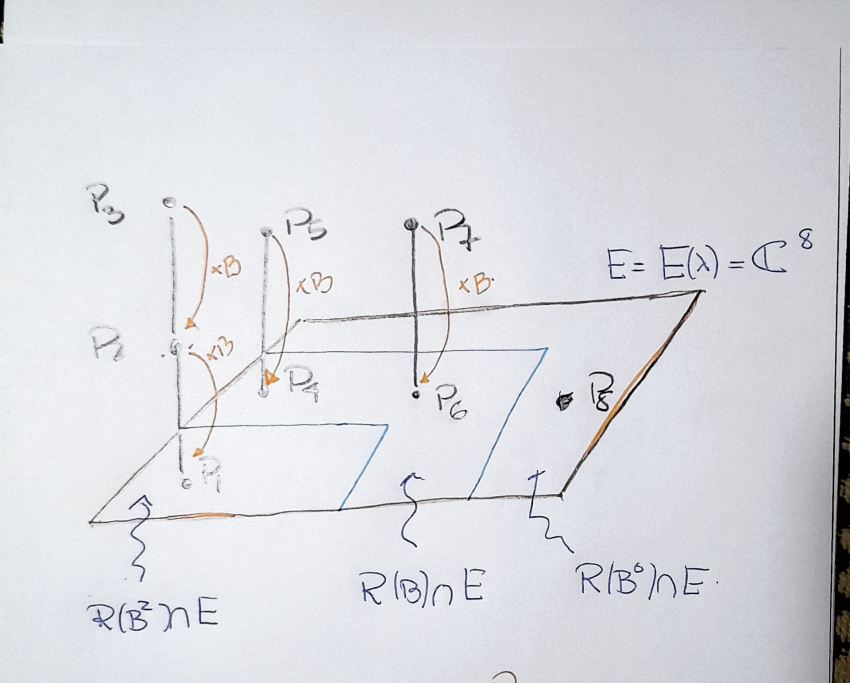 P₃
P₅
P₇
×B
×B
×B.
E = E(λ) = ℂ⁸
P₂
×B
P₄
P₆
P₈
P₁
R(B²)∩E
R(B)∩E
R(B⁰)∩E.